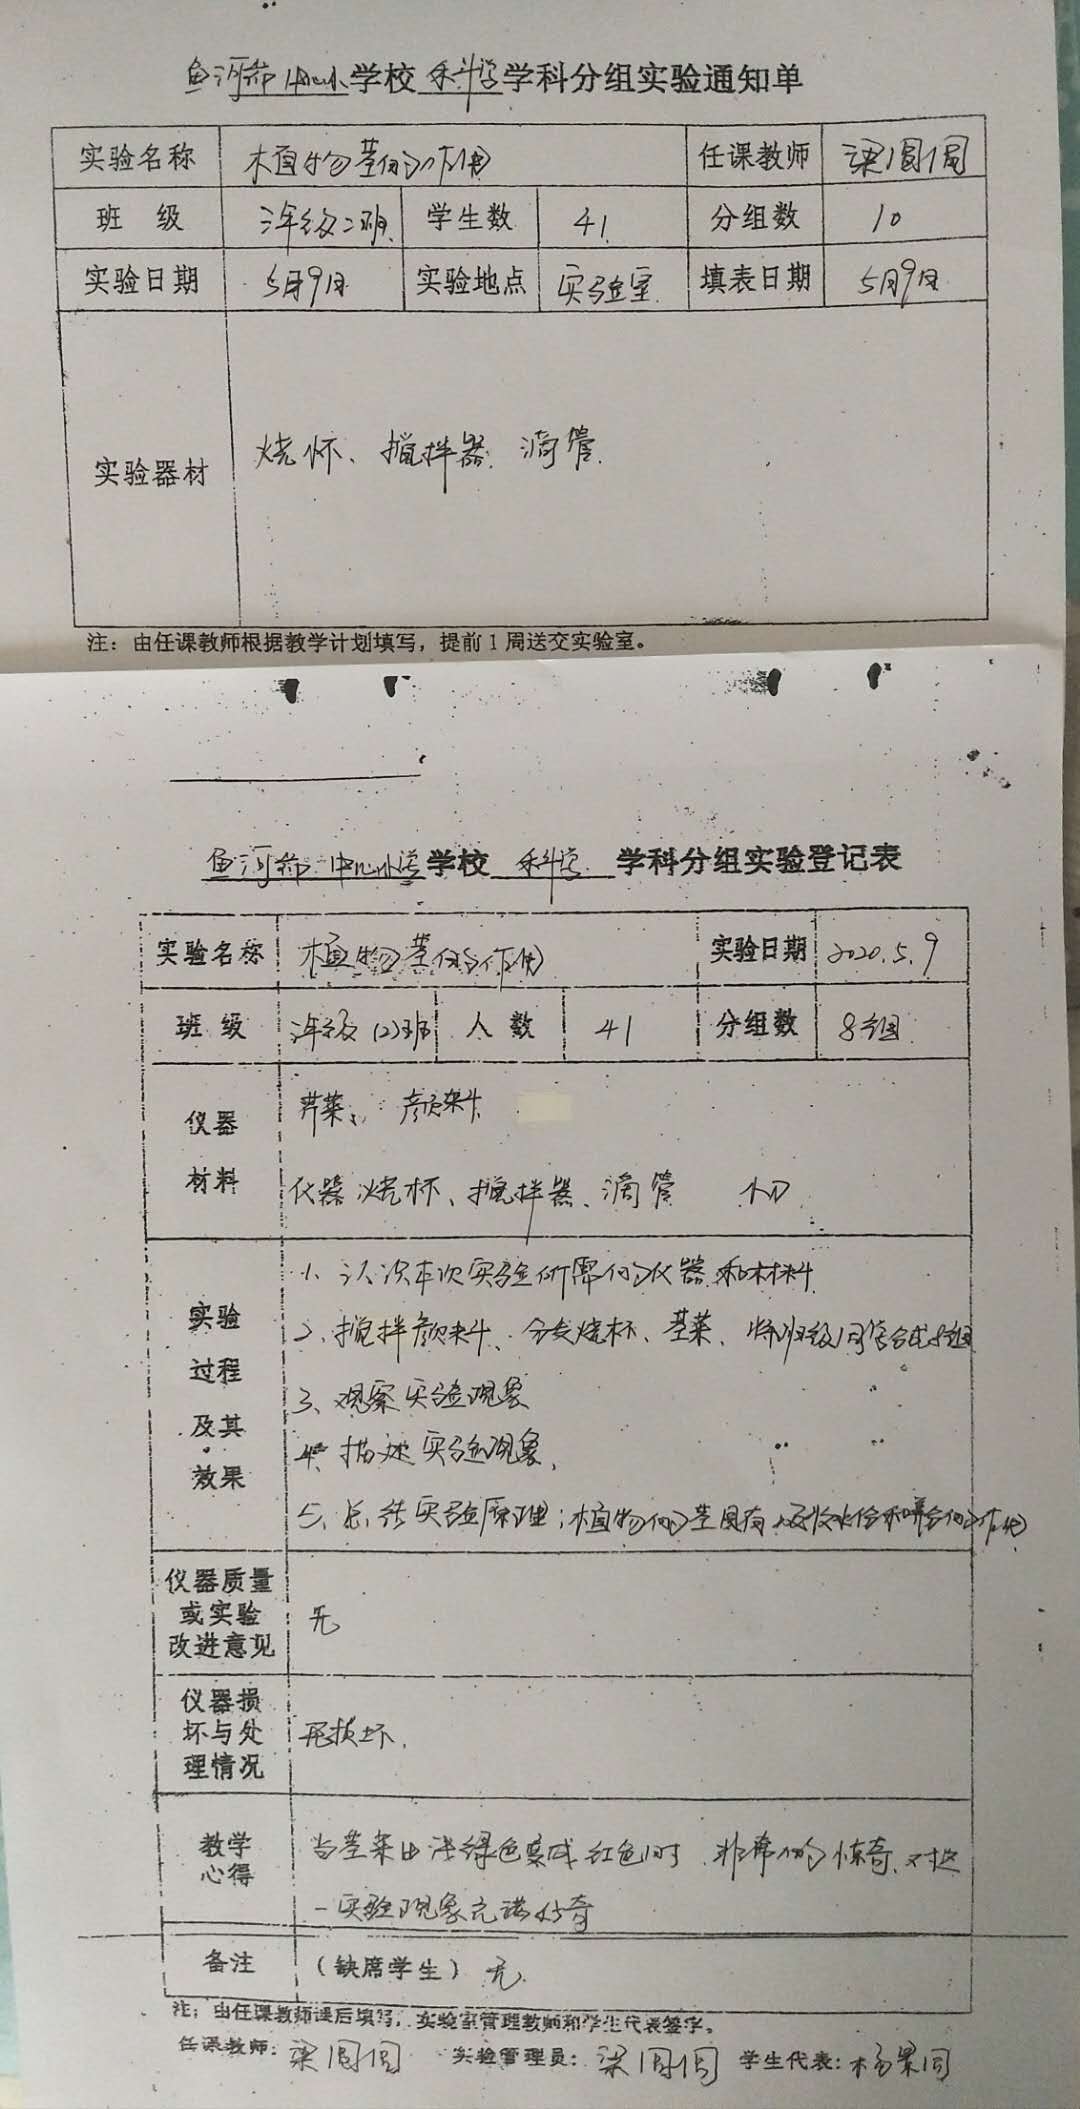 鱼河峁中心小学校 科学 学科分组实验通知单
实验名称 植物茎的作用 任课教师 梁圆圆
班 级 三年级二班 学生数 41 分组数 10
实验日期 5月9日 实验地点 实验室 填表日期 5月9日
实验器材 烧怀、搅拌器、滴管.
注：由任课教师根据教学计划填写，提前1周送交实验室。
鱼河峁中心小学学校 科学 学科分组实验登记表
实验名称 植物茎的作用 实验日期 2020.5.9
班 级 三年级(2)班 人 数 41 分组数 8组
仪器
材料
芹菜、颜料
仪器 烧杯、搅拌器、滴管 小刀
实验
过程
及其
效果
1、认识本次实验所需的仪器和材料
2、搅拌颜料、分发烧杯、茎菜、
3、观察实验现象
4、描述实验现象.
5、总结实验原理；植物的茎具有吸收水份和养份的作用
仪器质量
或实验
改进意见
无
仪器损
坏与处
理情况
无损坏.
教学
心得
当茎菜由浅绿色变成红色时 非常的惊奇、对这
一实验现象充满好奇
备注 （缺席学生）无.
注：由任课教师课后填写，实验室管理教师和学生代表签字。
任课教师：梁圆圆 实验管理员：梁圆圆 学生代表：杨果同